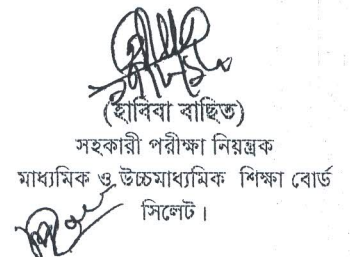 (হাবিবা বাছিত)
সহকারী পরীক্ষা নিয়ন্ত্রক
মাধ্যমিক ও উচ্চমাধ্যমিক শিক্ষা বোর্ড
সিলেট।